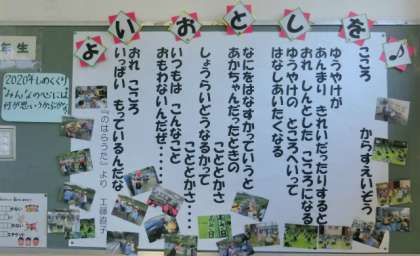 よいおとしを♪
こころ
からすえいぞう
ゆうやけが
あんまり きれいだったりすると
おれ しんとした こころになる
ゆうやけの ところへいって
はなしあいたくなる
なにをはなすかっていうと
あかちゃんだったときの
こととかさ
しょうらいどうなるかって
こととかさ・・・
いつもは こんなこと
おもわないんだぜ・・・
おれ こころ
いっぱい もっているんだな
『のはらうた』より 工藤直子
年生
2020年しめくくり
みんなの心には
何が思いうかぶかな